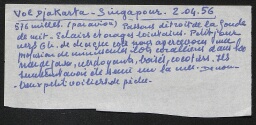 Vol Djakarta - Singapour. 2.04.56
576 milles. (par avion) Passons détroit de la Sonde
de nuit. Eclairs et orages lointains. Petit jour
vers 6h. de chaque côté nous apercevons une
profusion de minuscules îlots coralliens dans la
verdoyants, cocotiers. Ils
semblent avoir été semés sur la mer.
petits voiliers de pêche.